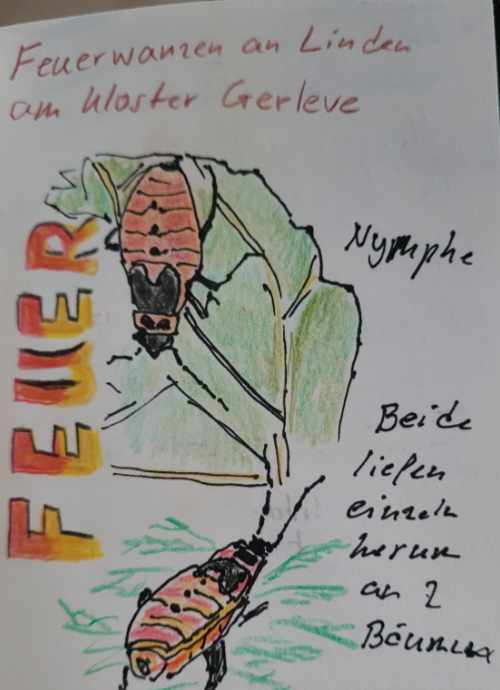 Feuerwanzen an Linden
am Kloster Gerleve
FEUER
Nymphe
Beide
liefen
einzeln
herum
an 2
Bäumen